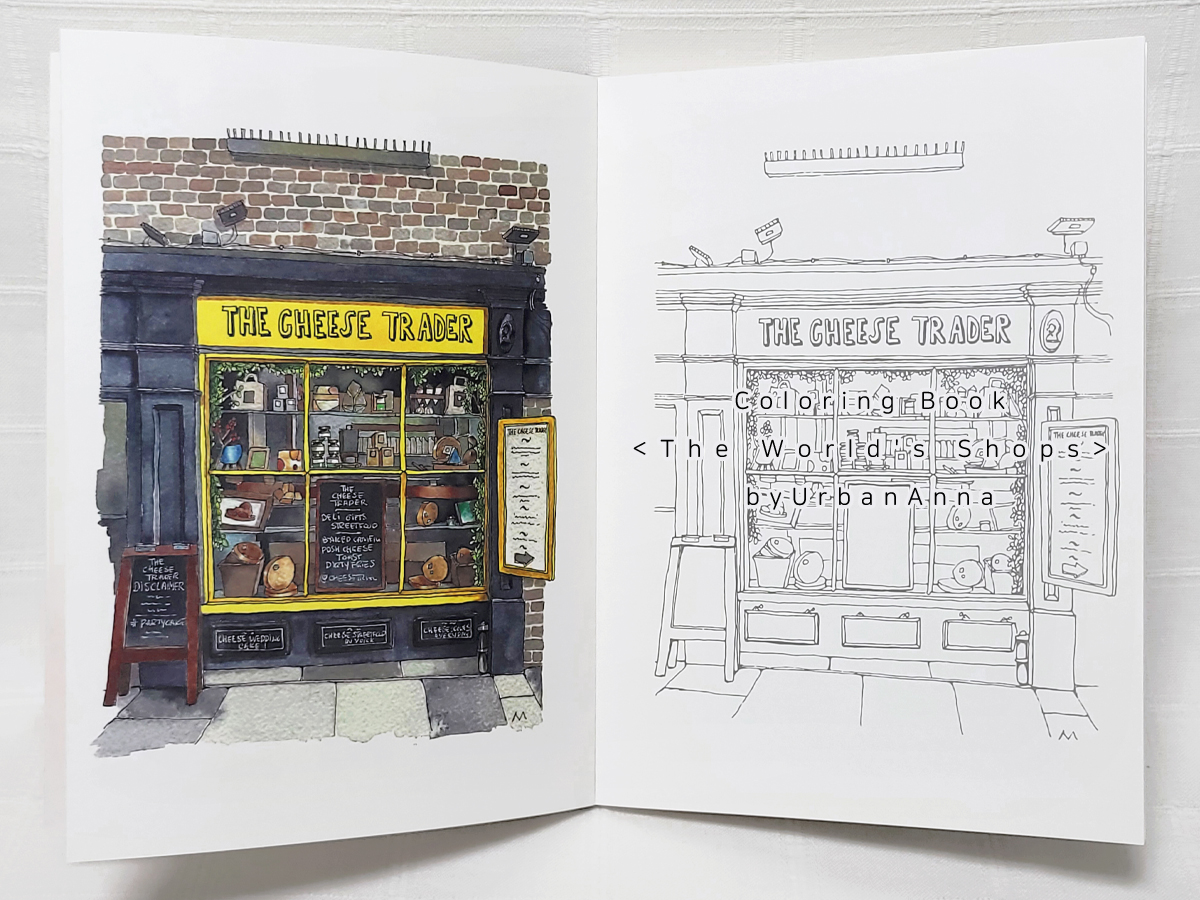 THE CHEESE TRADER
2
THE CHEESE TRADER
THE
CHEESE
TRADER
DELI GIFTS
STREETFOOD
POSH CHEESE
TOAST
DIRTY FRIES
THE
CHEESE
TRADER
DISCLAIMER
# PARTYCAKE
CHEESE WEDDING
CAKE!
CHEESE STREETFOOD
M
THE CHEESE TRADER
2
THE CHEESE TRADER
M
Coloring Book
<The World's Shops>
byUrbanAnna